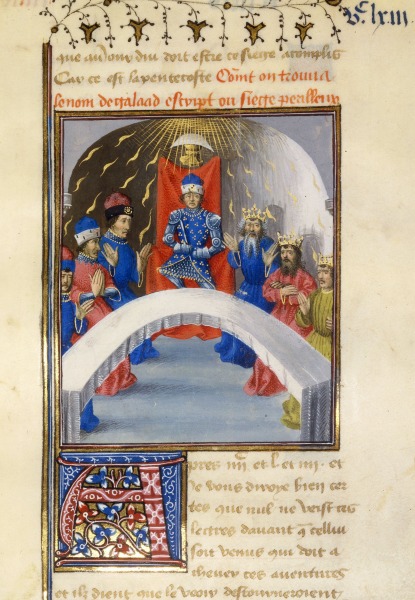 Vᶜ lxiii
que au jour duy doit estre ce siege acomplis
Car ce est la penthecoste Com̃t on trouva
le nom de galaad escript ou siege perilleux
Apres iiijᶜ et L et iiij et
je vous diroye bien cer
tes que nul ne verst ces
lectres davant q̃ cellui
soit venus qui doit a
chever ces aventures
et ilz dient que le veoir destourneroient